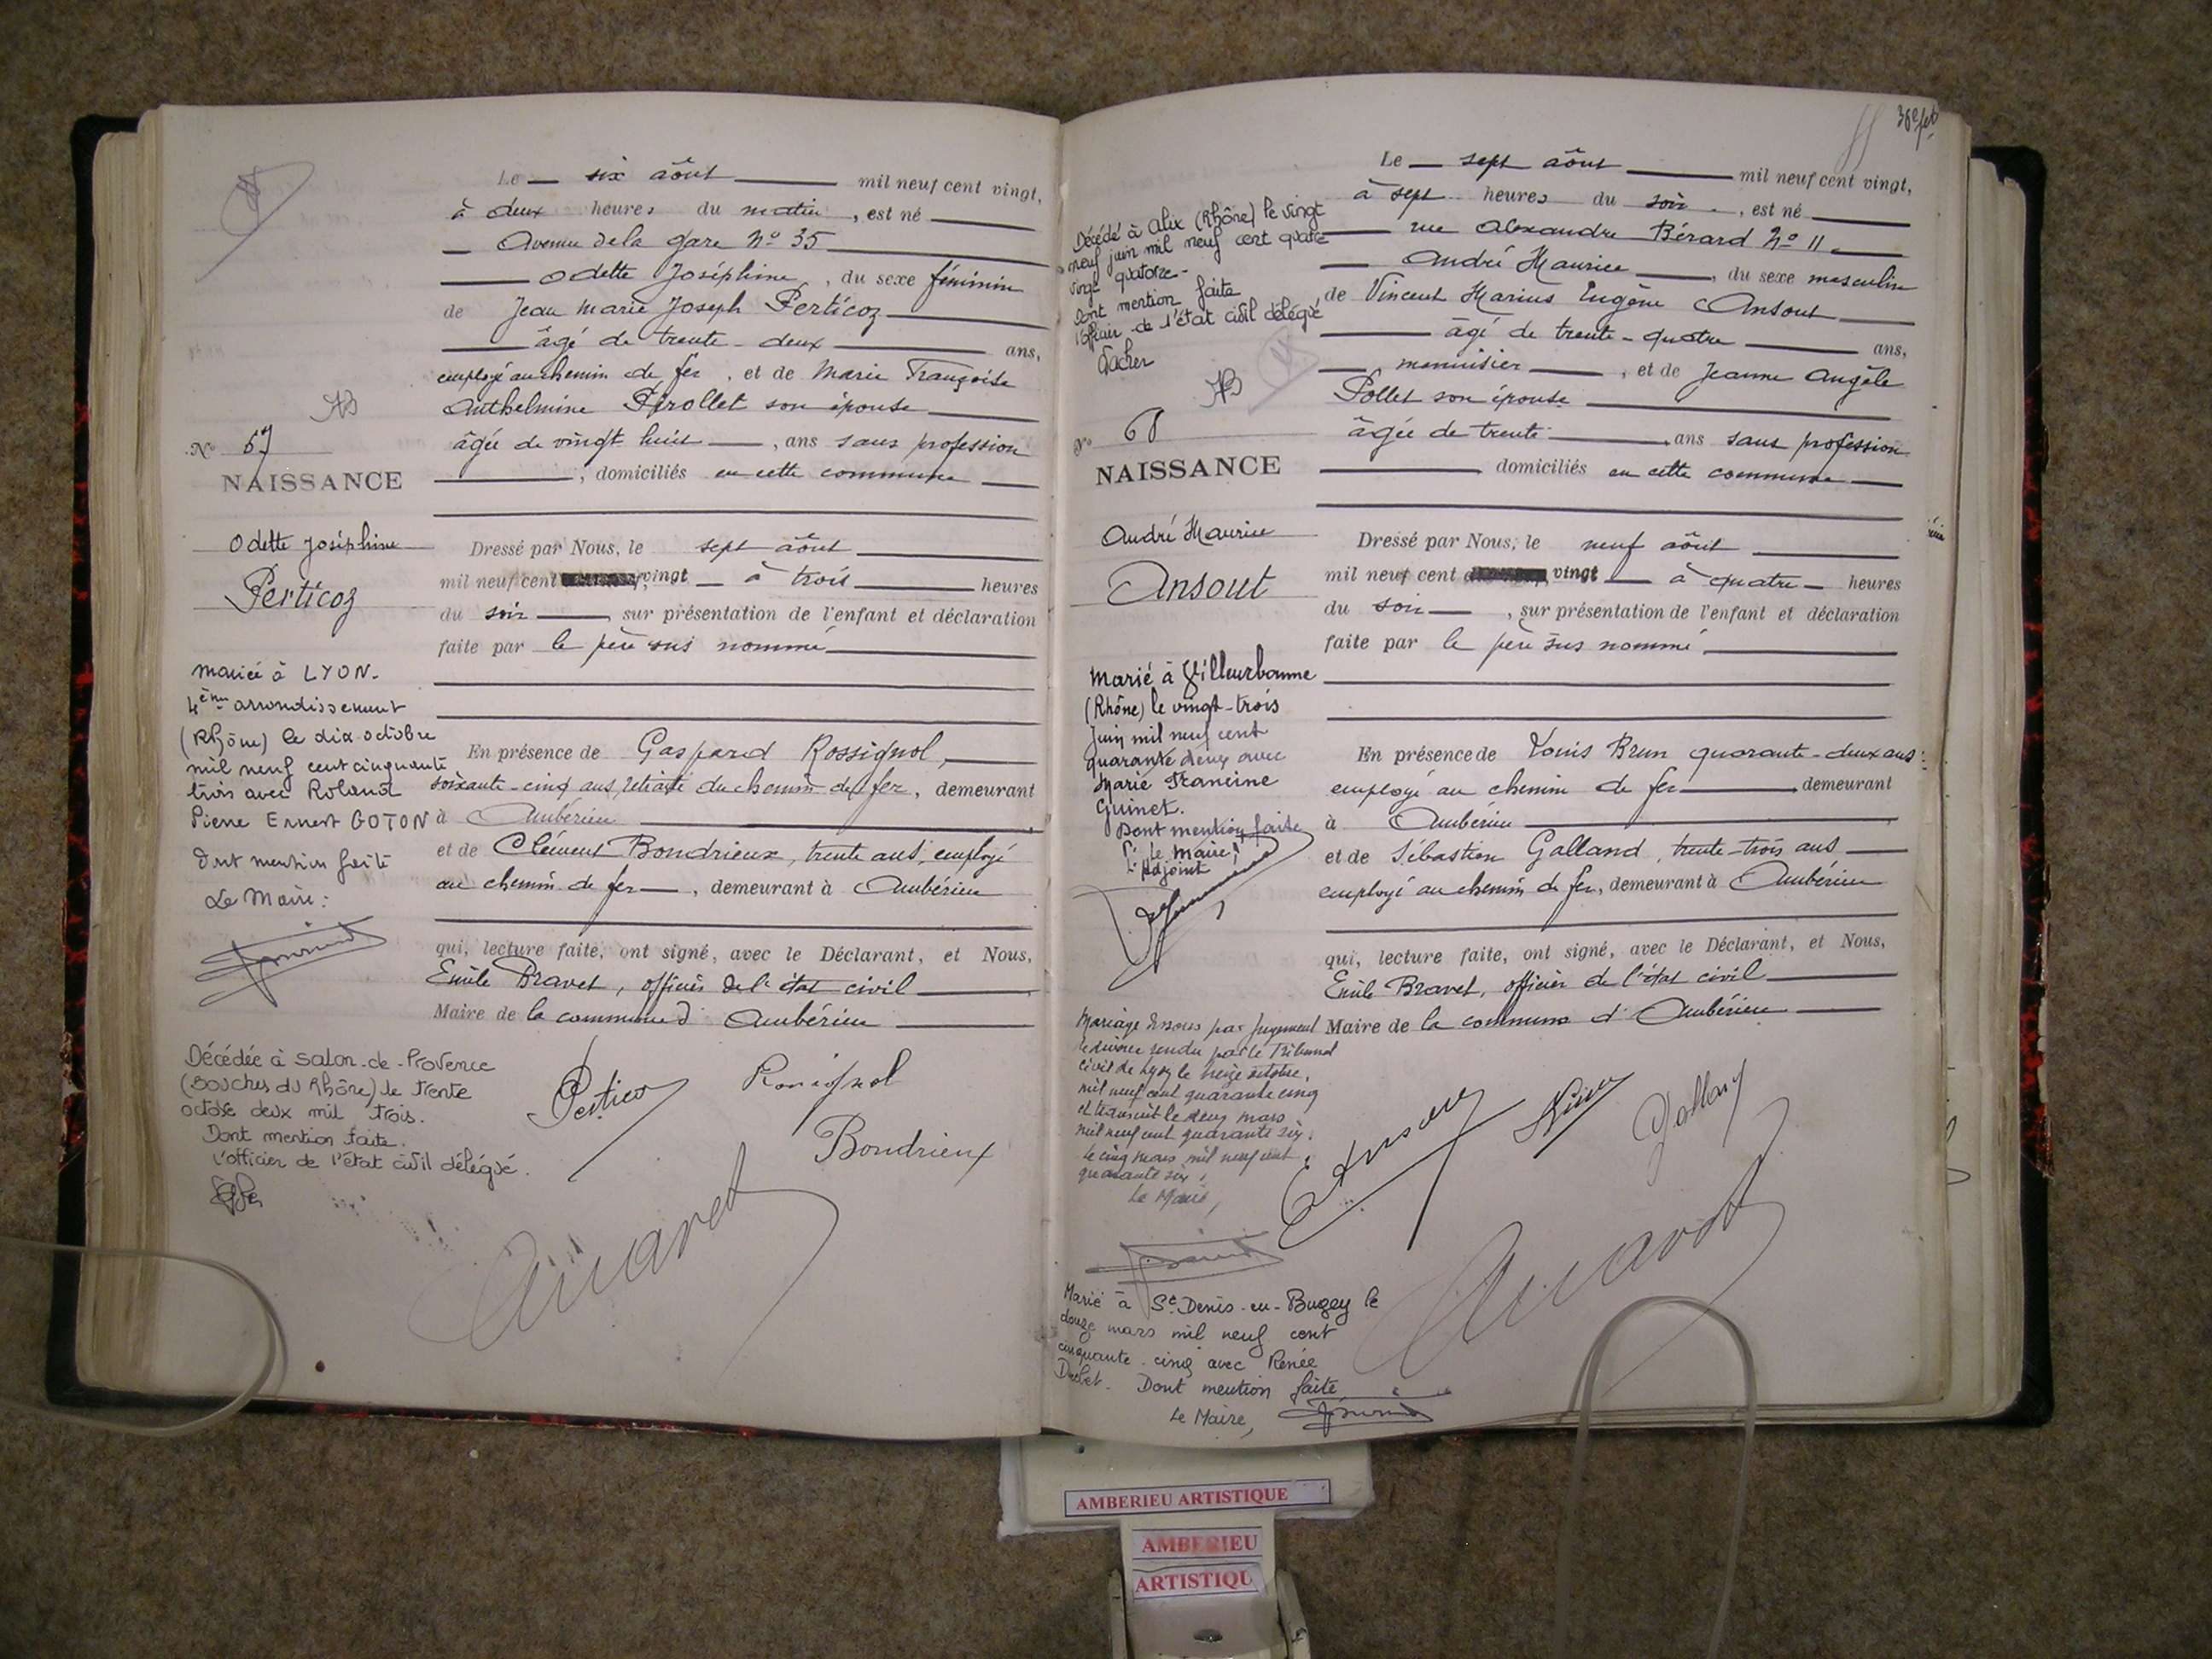 Le six août mil neuf cent vingt,
à deux heures du matin, est né
Avenue de la gare No 35
Odette Joséphine, du sexe féminin
de Jean Marie Joseph Perticoz
âgé de trente-deux ans,
employé au chemin de fer, et de Marie Françoise
Anthelmine Pirollet son épouse
âgée de vingt huit, ans sans profession
, domiciliés en cette commune
No 67
NAISSANCE
Odette Joséphine
Perticoz
Dressé par Nous, le sept août
mil neuf cent vingt à trois heures
du soir, sur présentation de l'enfant et déclaration
faite par le père sus nommé
En présence de Gaspard Rossignol,
soixante-cinq ans, retraité du chemin de fer, demeurant
à Ambérieu
et de Clément Bondrieux, trente ans, employé
au chemin de fer, demeurant à Ambérieu
qui, lecture faite, ont signé, avec le Déclarant, et Nous,
Emile Bravet, officier de l'état civil
Maire de la commune d' Ambérieu
Mariée à LYON.
4ème arrondissement
(Rhône) le dix octobre
mil neuf cent cinquante
trois avec Roland
Pierre Ernest GOTON
Dont mention faite
Le Maire:
Décédée à Salon-de-Provence
(Bouches du Rhône) le trente
octobre deux mil trois.
Dont mention faite.
L'officier de l'état civil délégué.
Perticoz
Rossignol
Bondrieux
Bravet
36e fet
Le sept août mil neuf cent vingt,
à sept heures du soir, est né
rue Alexandre Bérard No 11
André Maurice, du sexe masculin
de Vincent Marius Eugène Ansout
âgé de trente-quatre ans,
menuisier, et de Jeanne Angèle
Pollet son épouse
âgée de trente, ans sans profession
domiciliés en cette commune
Décédé à Alix (Rhône) le vingt
neuf juin mil neuf cent quatre
vingt quatorze-
Dont mention faite
l'officier de l'état civil délégué
Vacher
No 68
NAISSANCE
André Maurice
Ansout
Dressé par Nous, le neuf août
mil neuf cent vingt à quatre heures
du soir, sur présentation de l'enfant et déclaration
faite par le père sus nommé
En présence de Louis Brun quarante-deux ans
employé au chemin de fer demeurant
à Ambérieu
et de Sébastien Galland, trente-trois ans
employé au chemin de fer, demeurant à Ambérieu
qui, lecture faite, ont signé, avec le Déclarant, et Nous,
Emile Bravet, officier de l'état civil
Maire de la commune d' Ambérieu
Marié à Villeurbanne
(Rhône) le vingt-trois
Juin mil neuf cent
quarante deux avec
Marie Francine
Guinet.
Dont mention faite
P. Le Maire;
L'Adjoint
Mariage dissous par jugement
de divorce rendu par le Tribunal
civil de Lyon le treize octobre,
mil neuf cent quarante cinq
et transcrit le deux mars
mil neuf cent quarante six.
Le cinq mars mil neuf cent
quarante six,
Le Maire,
Marié à St Denis-en-Bugey le
douze mars mil neuf cent
cinquante-cinq avec Renée
Dont mention faite
Le Maire,
Galland
Bravet
AMBERIEU ARTISTIQUE
AMBERIEU
ARTISTIQU